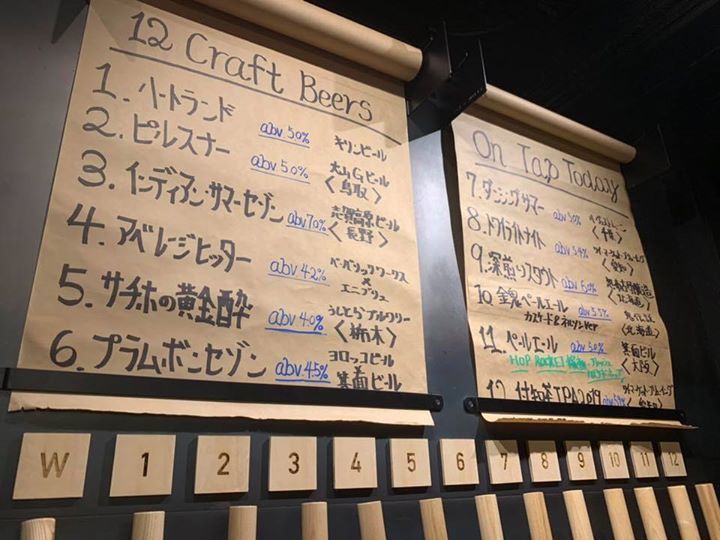 12 Craft Beers
1. ハートランド abv 5.0% キリンビール
2. ピルスナー abv 5.0% 大山Gビール
〈鳥取〉
3. インディアン・サマーセゾン abv 7.0% 志賀高原ビール
〈長野〉
4. アベレージヒッター abv 4.2%
×
エニブリュ
5. サチホの黄金酔 abv 4.0% うしとらブルワリー
〈栃木〉
6. プラム・ボンセゾン abv 4.5% ヨロッコビール
箕面ビール
On Tap Today
7. ダンシングサマー abv 5.0%
〈千葉〉
8. トワイライトナイト abv 5.4%
9. 深煎りスタウト abv 6.0%
〈北海道〉
10 金鬼ペールエール abv 5.5%
カスケード&ネルソンver 〈北海道〉
11. ペールエール abv 5.0% 箕面ビール
HOP ROCKET 〈大阪〉
12. 付知茶IPA2019
W 1 2 3 4 5 6 7 8 9 10 11 12